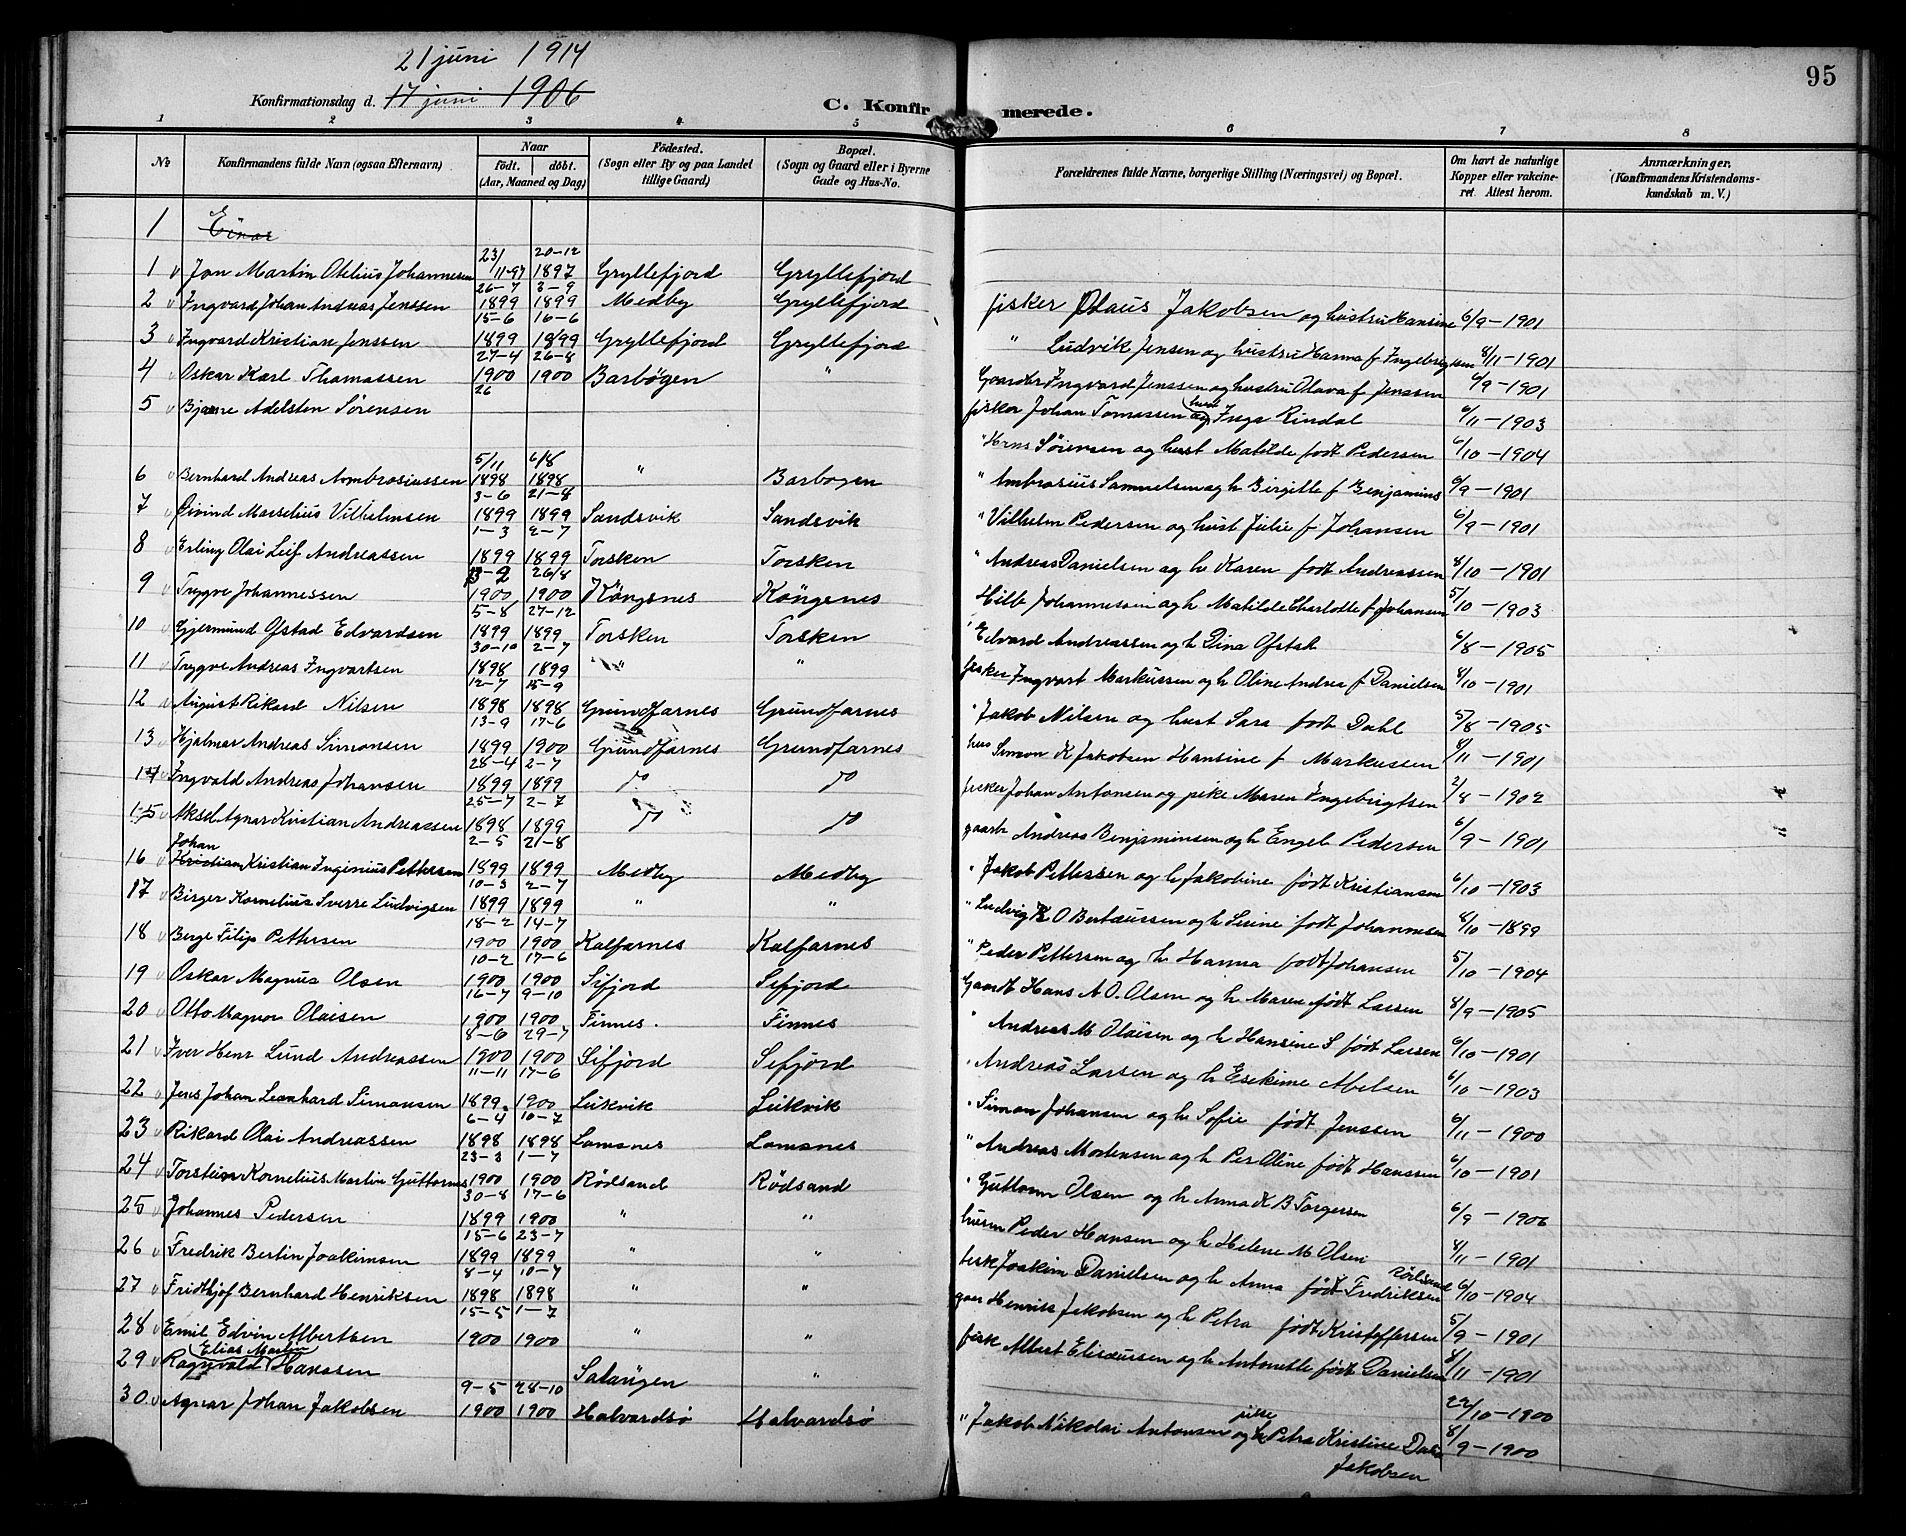 21 juni 1914
Konfirmationsdag d. 17 juni 1906
C. Konfirmerede.
95
1 2 3 4 5 6 7 8
No
Konfirmandens fulde Navn (ogsaa Efternavn)
Naar
födt. döbt.
(Aar, Maaned og Dag)
Födested.
(Sogn eller By og paa Landet
tillige Gaard)
Bopæl.
(Sogn og Gaard eller i Byerne
Gade og Hus-No.
Forældrenes fulde Navne, borgerlige Stilling (Næringsvei) og Bopæl.
Om havt de naturlige
Kopper eller vakcine-
ret. Attest herom.
Anmærkninger.
(Konfirmandens Kristendoms-
kundskab m. V.)
1 Einar
1 Jon Martin Otelius Johannesen 23/11-97 20-12 1897 Gryllefjord Gryllefjord fisker Olaus Jakobsen og hustru Hansine 6/9-1901
2 Ingvard Johan Andreas Jenssen 26-7 1899 3-9 1899 Medby Gryllefjord " Ludvik Jensen og hustru Hanna f. Ingebrigtsen 8/11-1901
3 Ingvard Kristian Jenssen 15-6 1899 16-6 1899 Gryllefjord Gryllefjord Gaardbr Ingvard Jenssen og hustru Olava f. Jenssen 6/9-1901
4 Oskar Karl Thomassen 27-4 1900 26-8 1900 Barbögen " fisker Johan Tomassen og Inga Rindal 6/11-1903
5 Bjarne Adelsten Sörensen 26 " Hans Sörensen og hust Matilde födt Pedersen 6/10-1904
6 Bernhard Andreas Ambrosiussen 5/11 1898 6/8 1898 " Barbogen " Ambrosius Samuelsen og h Birgitte f Benjamins 6/9-1901
7 Eivind Marselius Vilhelmsen 3-6 1899 21-8 1899 Sandsvik Sandsvik " Vilhelm Pedersen og hust Julie f. Johansen 6/9-1901
8 Erling Olai Leif Andreassen 1-3 1899 2-7 1899 Torsken Torsken " Andreas Danielsen og h Karen födt Andreassen 8/10-1901
9 Trygve Johannessen 3-2 1900 26/8 1900 Köngsnes Köngsnes Johannessen og h Matilde Charlotte f Johansen 5/10-1903
10 Gjermund Ofstad Edvardsen 5-8 1899 27-12 1899 Torsken Torsken " Edvard Andreassen og h Dina Ofstad 6/8-1905
11 Trygve Andreas Ingvartsen 30-10 1898 2-7 1899 " " fisker Ingvart Markussen og h Oline Andrea f Danielsen 8/10-1901
12 August Rikard Nilsen 12-7 1898 15-9 1898 Grundfarnes Grundfarnes " Jakob Nilsen og hust Sara födt Dahl 5/8-1905
13 Hjalmar Andreas Simonsen 13-9 1899 17-6 1900 Grundfarnes Grundfarnes Simon K Jakobsen Hansine f Markussen 8/11-1901
14 Ingvald Andreas Johansen 28-4 1899 2-7 1899 do do fisker Johan Antonsen og pike Maren Ingebrigtsen 2/8-1902
15 Aksel Agnar Kristian Andreassen 25-7 1898 2-7 1899 do do gaarbr Andreas Benjaminsen og h Engel Pedersen 6/9-1901
Johan
16 Kristian Kristian Ingenius Pettersen 2-5 1899 21-8 1899 Medby Medby " Jakob Pettersen og h Jakobine födt Kristiansen 6/10-1903
17 Birger Kornelius Sverre Ludvigsen 10-3 1899 2-7 1899 " " " Ludvig K. O. Bertæussen og h Serine födt Johannesen 8/10-1899
18 Berge Filip Pettersen 18-2 1900 14-7 1900 Kalfarnes Kalfarnes " Peder Pettersen og h Hanna födt Johansen 5/10-1904
19 Oskar Magnus Olsen 10-2 1900 17-6 1900 Sifjord Sefjord Gaardt Hans A O. Olsen og h Maren födt Larsen 8/9-1905
20 Otto Magnor Olaisen 16-7 1900 9-10 1900 Finnes. Finnes " Andreas M Olaisen og h Hansine S födt Larsen 6/10-1901
21 Iver Henr Lund Andreassen 8-6 1900 29-7 1900 Sifjord Sefjord " Andreas Larsen og h Esekine Abelsen 6/10-1903
22 Jens Johan Leonhard Simonsen 11-11 1899 17-6 1900 Leikvik Leikvik " Simon Johansen og h Sofie födt Jenssen 6/11-1900
23 Rikard Olai Andreassen 6-4 1898 10-7 1898 Lamsnes Lamsnes " Andreas Mortensen og h Per Oline födt Hanssen 6/10-1901
24 Torstein Kornelius Martin Guttorms 23-3 1900 1-7 1900 Rödsand Rödsand " Guttorm Olsen og h Anna K B Torgersen 6/9-1906
25 Johannes Pedersen 30-8 1899 17-6 1900 " " husm Peder Hansen og h Helene M Olsen 8/11-1901
26 Fredrik Bertin Joakimsen 15-6 1899 23-7 1899 " " fisk Joakim Danielsen og h Anna födt Fredriksen Rödsand 6/10-1904
27 Fridthjof Bernhard Henriksen 8-4 1898 10-7 1898 " " gaar Henrik Jakobsen og h Petra födt Kristoffersen 5/9-1901
28 Emil Edvin Albertsen 15-5 1900 1-7 1900 " " fisk Albert Elisæussen og h Antonette födt Danielsen 8/11-1901
Elias Martin
29 Ragnvald Hanssen Salangen " 22/10-1900
30 Agnar Johan Jakobsen 9-5 1900 28-10 1900 Halvardsö Halvardsö " Jakob Nikolai Antonsen og pike Petra Kristine Dahl Jakobsen 8/9-1900